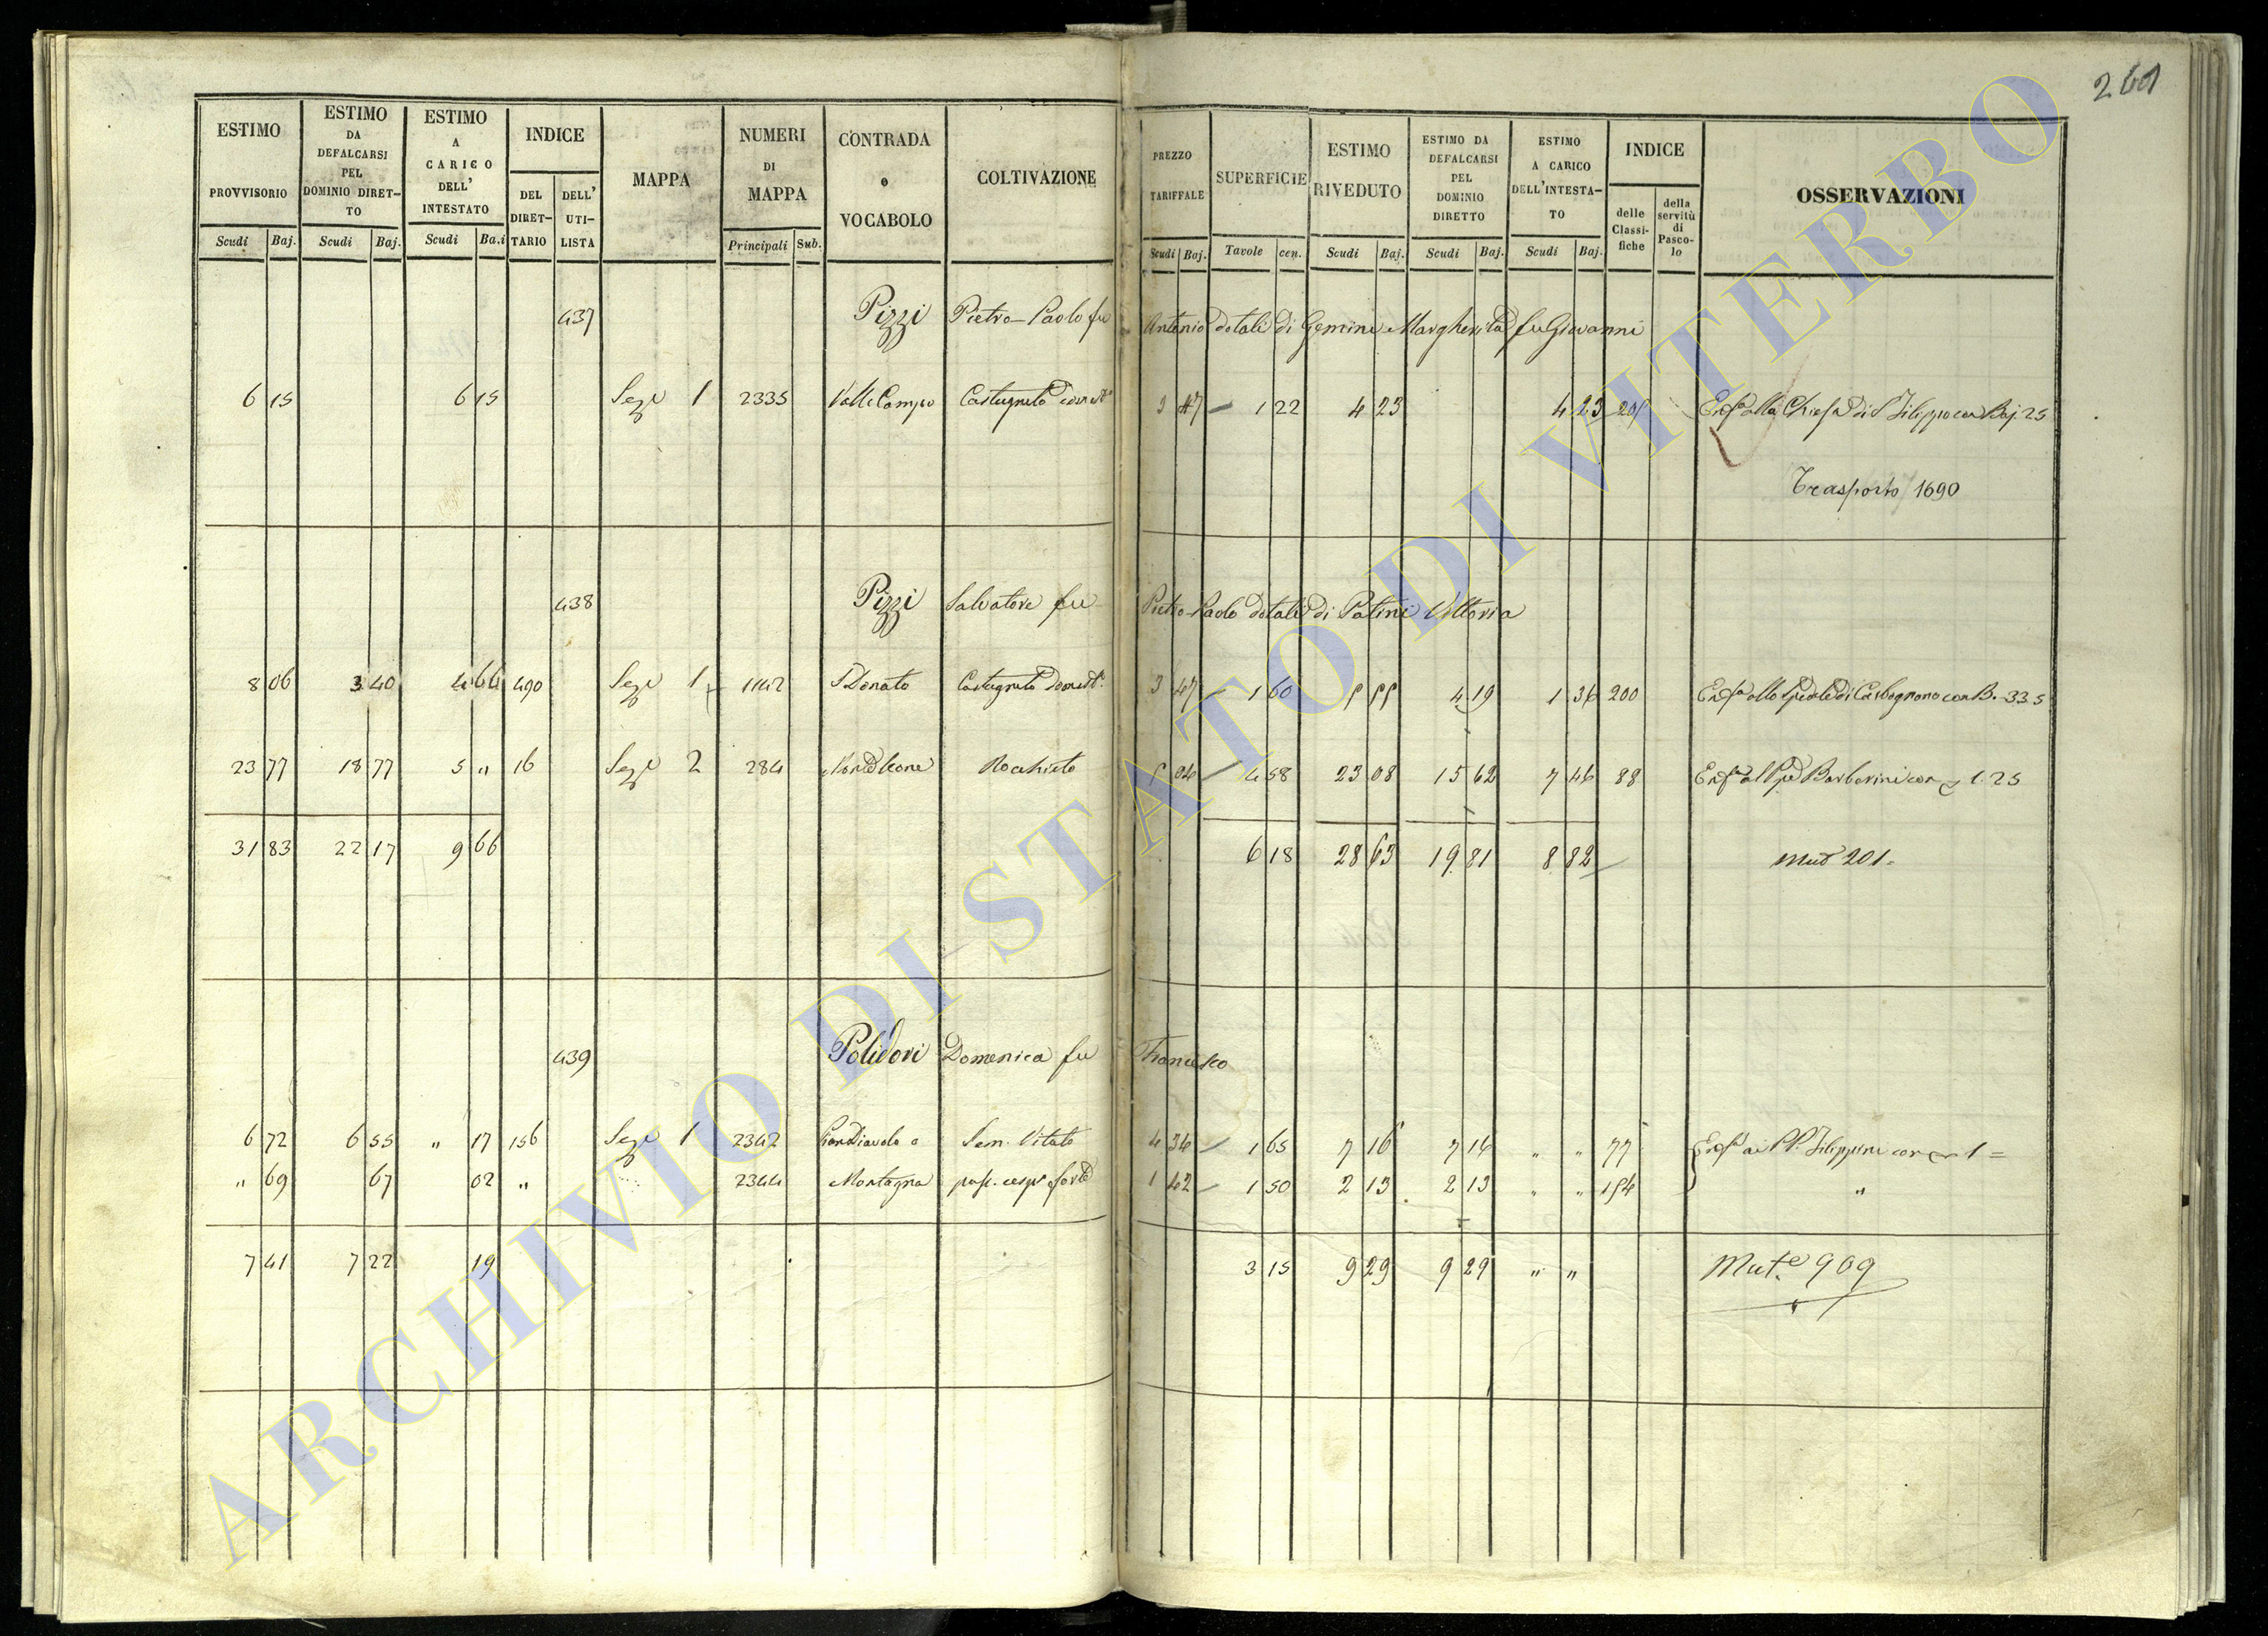 261
ESTIMO PROVVISORIO Scudi Baj.
ESTIMO DA DEFALCARSI PEL DOMINIO DIRETTO Scudi Baj.
ESTIMO A CARICO DELL' INTESTATO Scudi Ba.i
INDICE DEL DIRETTARIO DELL' UTILISTA
MAPPA
NUMERI DI MAPPA Principali Sub.
CONTRADA o VOCABOLO
COLTIVAZIONE
PREZZO TARIFFALE Scudi Baj.
SUPERFICIE Tavole cen.
ESTIMO RIVEDUTO Scudi Baj.
ESTIMO DA DEFALCARSI PEL DOMINIO DIRETTO Scudi Baj.
ESTIMO A CARICO DELL'INTESTATO Scudi Baj.
INDICE delle Classifiche della servitù di Pascolo
OSSERVAZIONI
437 Pizzi Pietro-Paolo fu Antonio dotali di Gemini Margherita fu Giovanni
6 15 6 15 Sez.e 1 2335 Valle Campo Castagneto 3 47 1 22 4 23 4 23 201 Enf.a alla Chiesa di S Filippo con Baj. 25
Trasporto 1690
438 Pizzi Salvatore fu Pietro-Paolo dotali di Patini Vittoria
8 06 3 40 4 66 490 Sez.e 1 1142 S Donato Castagneto domest. 3 47 1 60 5 55 4 19 1 36 200 Enf.a allo Spedale di Carbognano con B. 33.5
23 77 18 77 5 " 16 Sez.e 2 284 Monteleone Nocchieto 5 04 4 58 23 08 15 62 7 46 88 Enf.a al Barberini con 1.25
31 83 22 17 9 66 6 18 28 63 19 81 8 82 Mut 201=
439 Polidori Domenica fu Francesco
6 72 6 55 " 17 156 Sez.e 1 2342 Pian Diavolo o Sem. Vitato 4 34 1 65 7 16 7 16 " " 77 Enf.a ai PP. Filippini con 1=
" 69 67 02 " 2344 Montagna pasc. cesp. forte 1 42 1 50 2 13 2 13 " " 154 "
7 41 7 22 19 3 15 9 29 9 29 " " Mut.e 909
ARCHIVIO DI STATO DI VITERBO